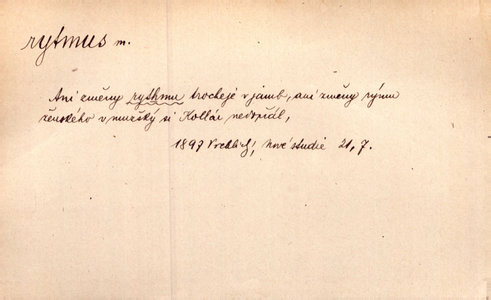 rytmus m.
Ani změny rythmu trochejů v jamb, ani změny rýmu
ženského v mužský si Kollár nedopřál,
1897 Vrchlický, Nové studie 21, 7.